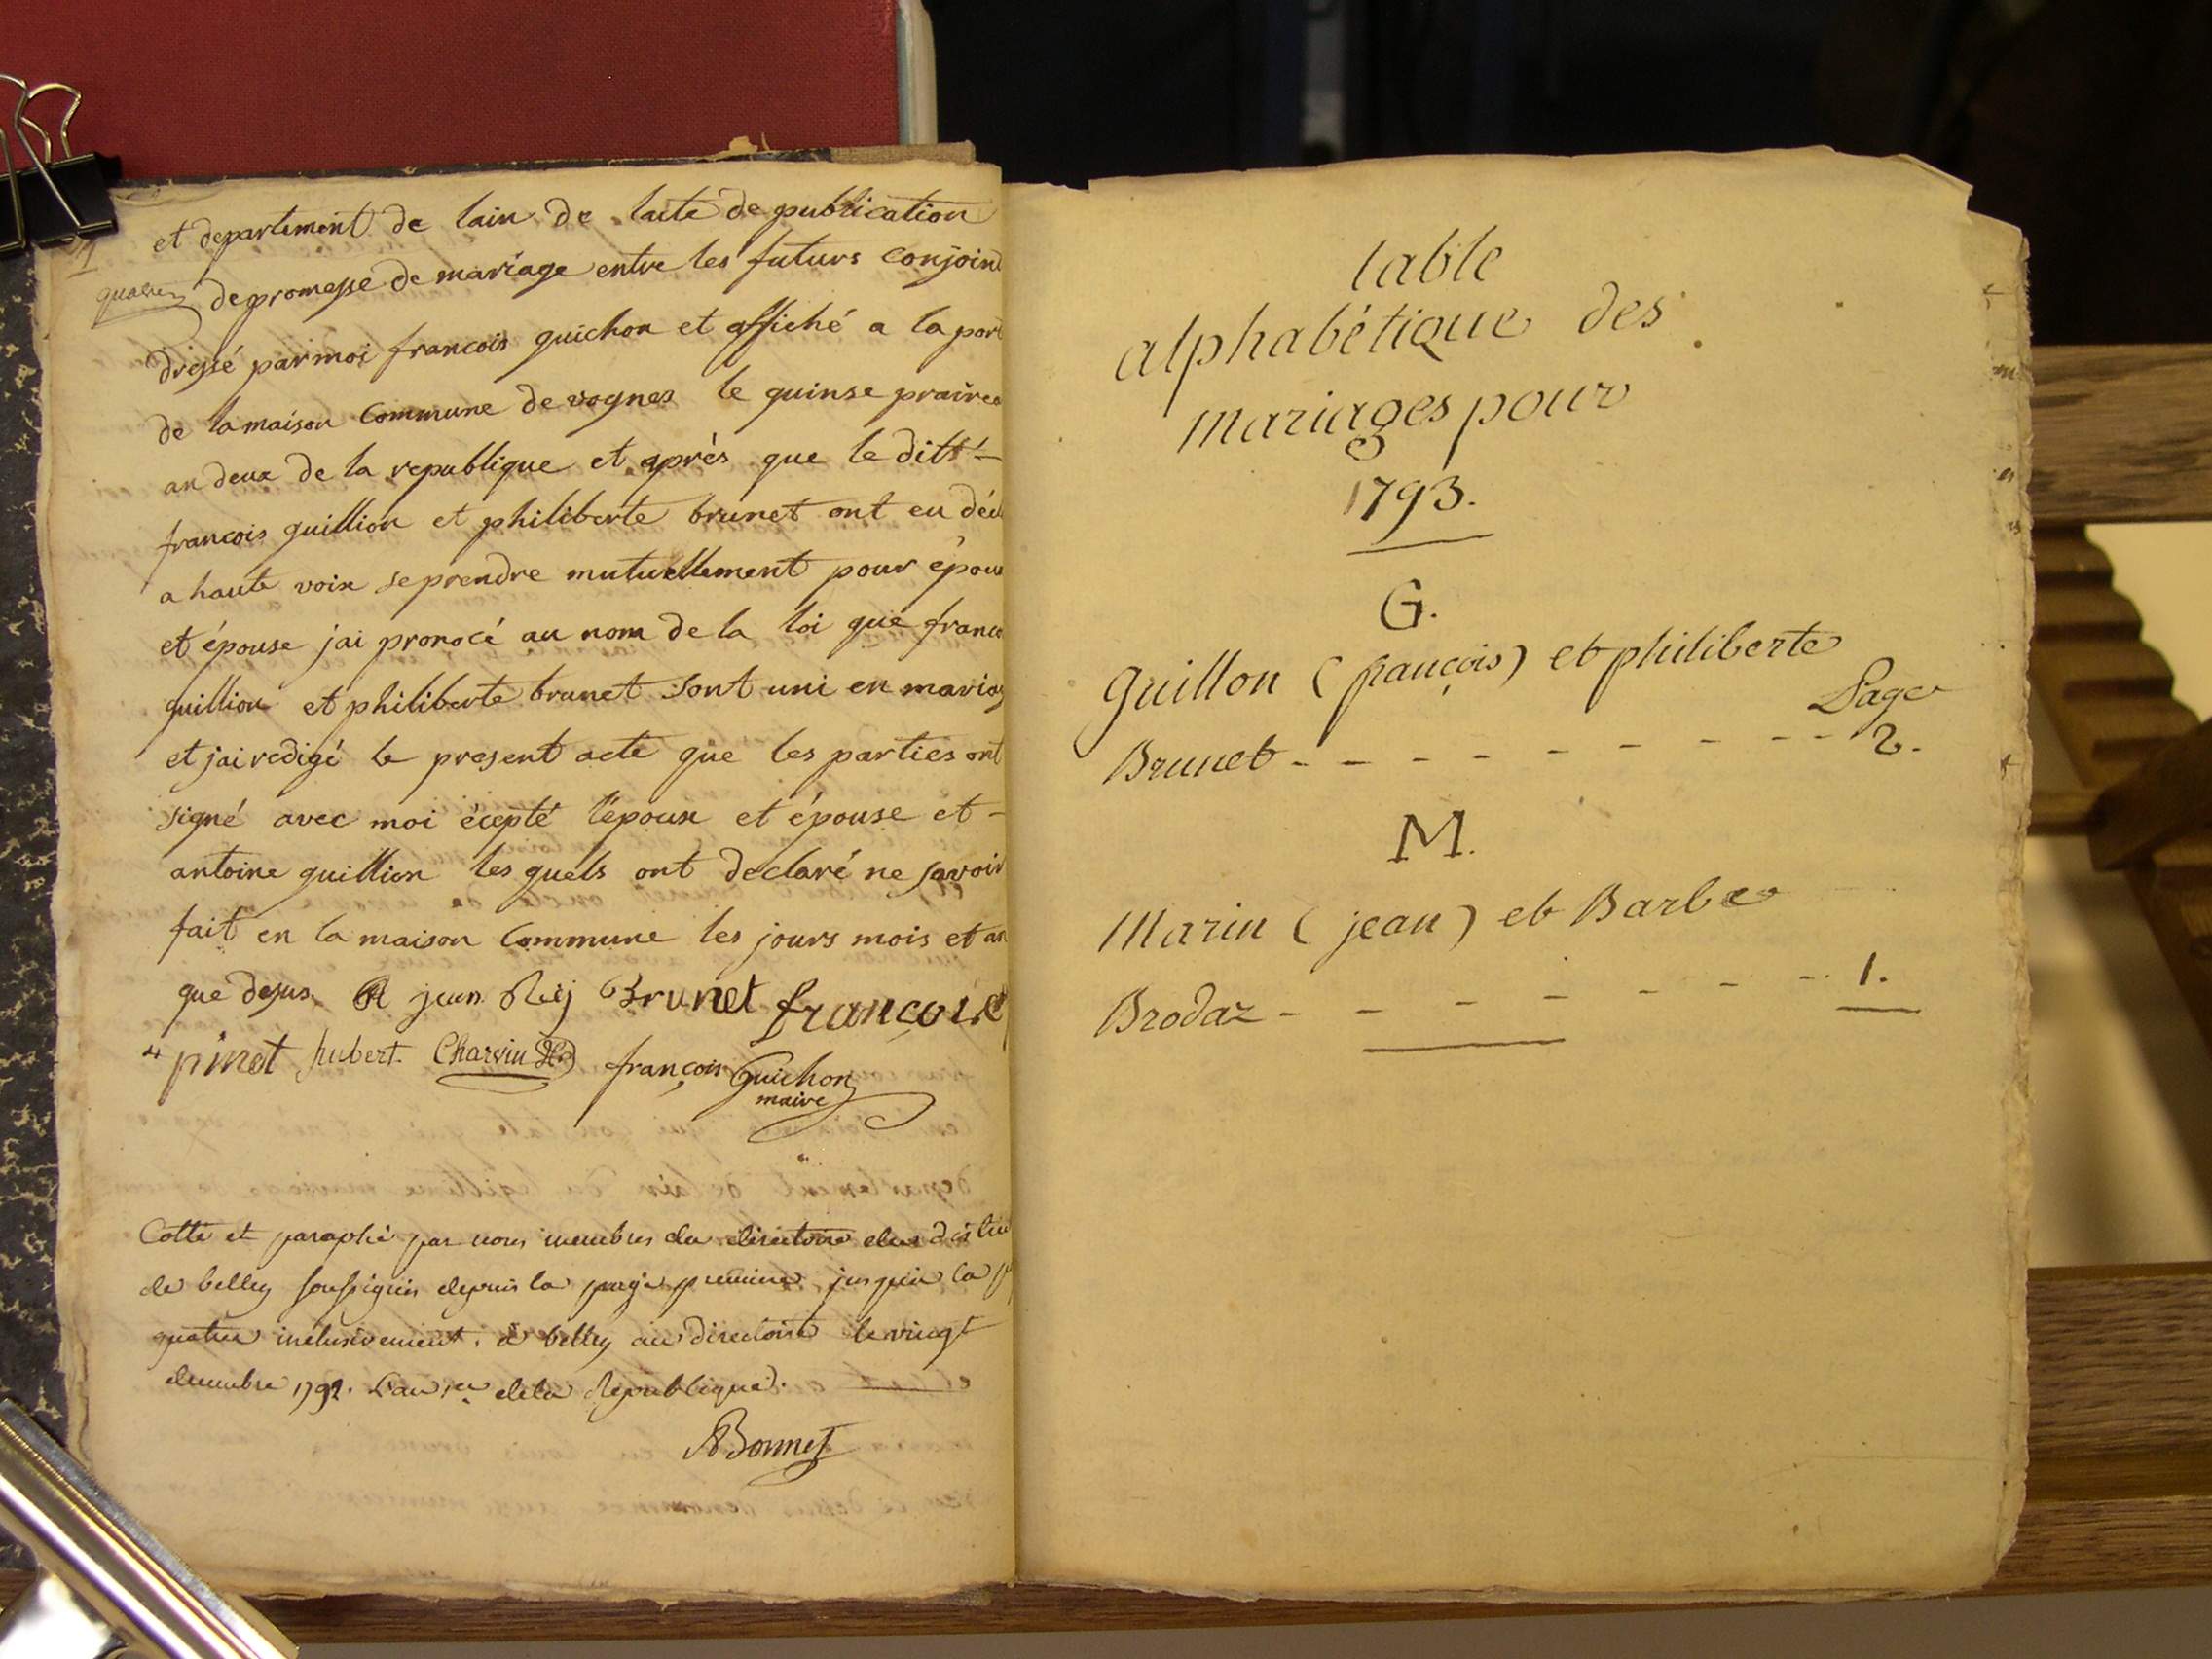 et departement de lain de lacte de publication
quatre
de promesse de mariage entre les futurs conjoint
dressé par moi francois guichon et affiché a la port
de la maison commune de vognes le quinse prairea
an deux de la republique et après que le ditt
francois guillion et philiberte brunet ont eu décl
a haute voix se prendre mutuellement pour épou
et épouse jai pronocé au nom de la loi que franco
guillion et philiberte brunet sont uni en mariag
et jai redigé le present acte que les parties ont
signé avec moi écepté l'époux et épouse et -
antoine guillion les quels ont declaré ne savoir
fait en la maison commune les jours mois et an
que desus jean Rey Brunet francois
pinet hubert Charvin francois Guichon
maire
Cotté et paraphé par nous membres du directoire du distri
de belley soussignés depuis la page premiere jusqu'a la p
quatre inclusivement. a belley au directoire le vingt
decembre 1792. L'an 1er de la Republique.
Bonnet
table
alphabétique des
mariages pour
1793.
G.
Guillon (françois) et philiberte
Page
Brunet - - - - - - - - - 2.
M.
Marin (jean) et Barbe
Brodaz - - - - - - - - 1.